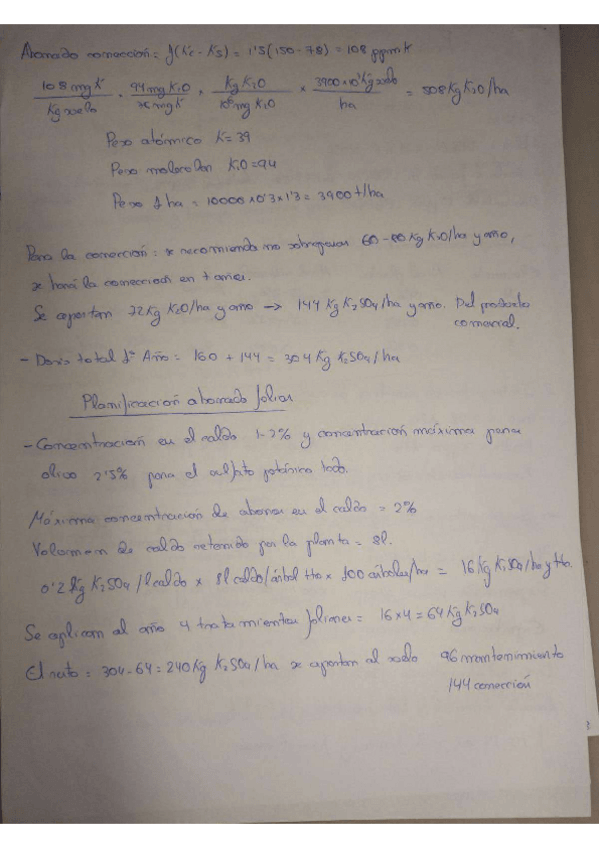 Abonado corrección: f(Kc - Ks) = 1'5(150-78) = 108 ppm K
108 mg K / Kg suelo · 94 mg K2O / mg K · Kg K2O / 10⁶ mg K2O × 3900×10³ Kg suelo / ha = 508 Kg K2O/ha
Peso atómico K = 39
Peso molecular K2O = 94
Peso 1 ha = 10000 × 0'3 × 1'3 = 3900 t/ha
Para la corrección: se recomienda no sobrepasar 60-80 Kg K2O/ha y año,
se hará la corrección en 7 años.
Se aportan 72 Kg K2O/ha y año → 144 Kg K2SO4/ha y año. Del producto
comercial.
- Dosis total 1º Año = 160 + 144 = 304 Kg K2SO4/ha
Planificación abonado foliar
- Concentración en el caldo 1-2% y concentración máxima para
olivo 2'5% para el sulfato potásico todo.
Máxima concentración de abono en el caldo = 2%
Volumen de caldo retenido por la planta = 8l.
0'2 Kg K2SO4/l caldo × 8l caldo/árbol tto × 100 árboles/ha = 16 Kg K2SO4/ha y tto.
Se aplican al año 4 tratamientos foliares = 16×4 = 64 Kg K2SO4
El resto = 304-64 = 240 Kg K2SO4/ha se aportan al suelo 96 mantenimiento
144 corrección